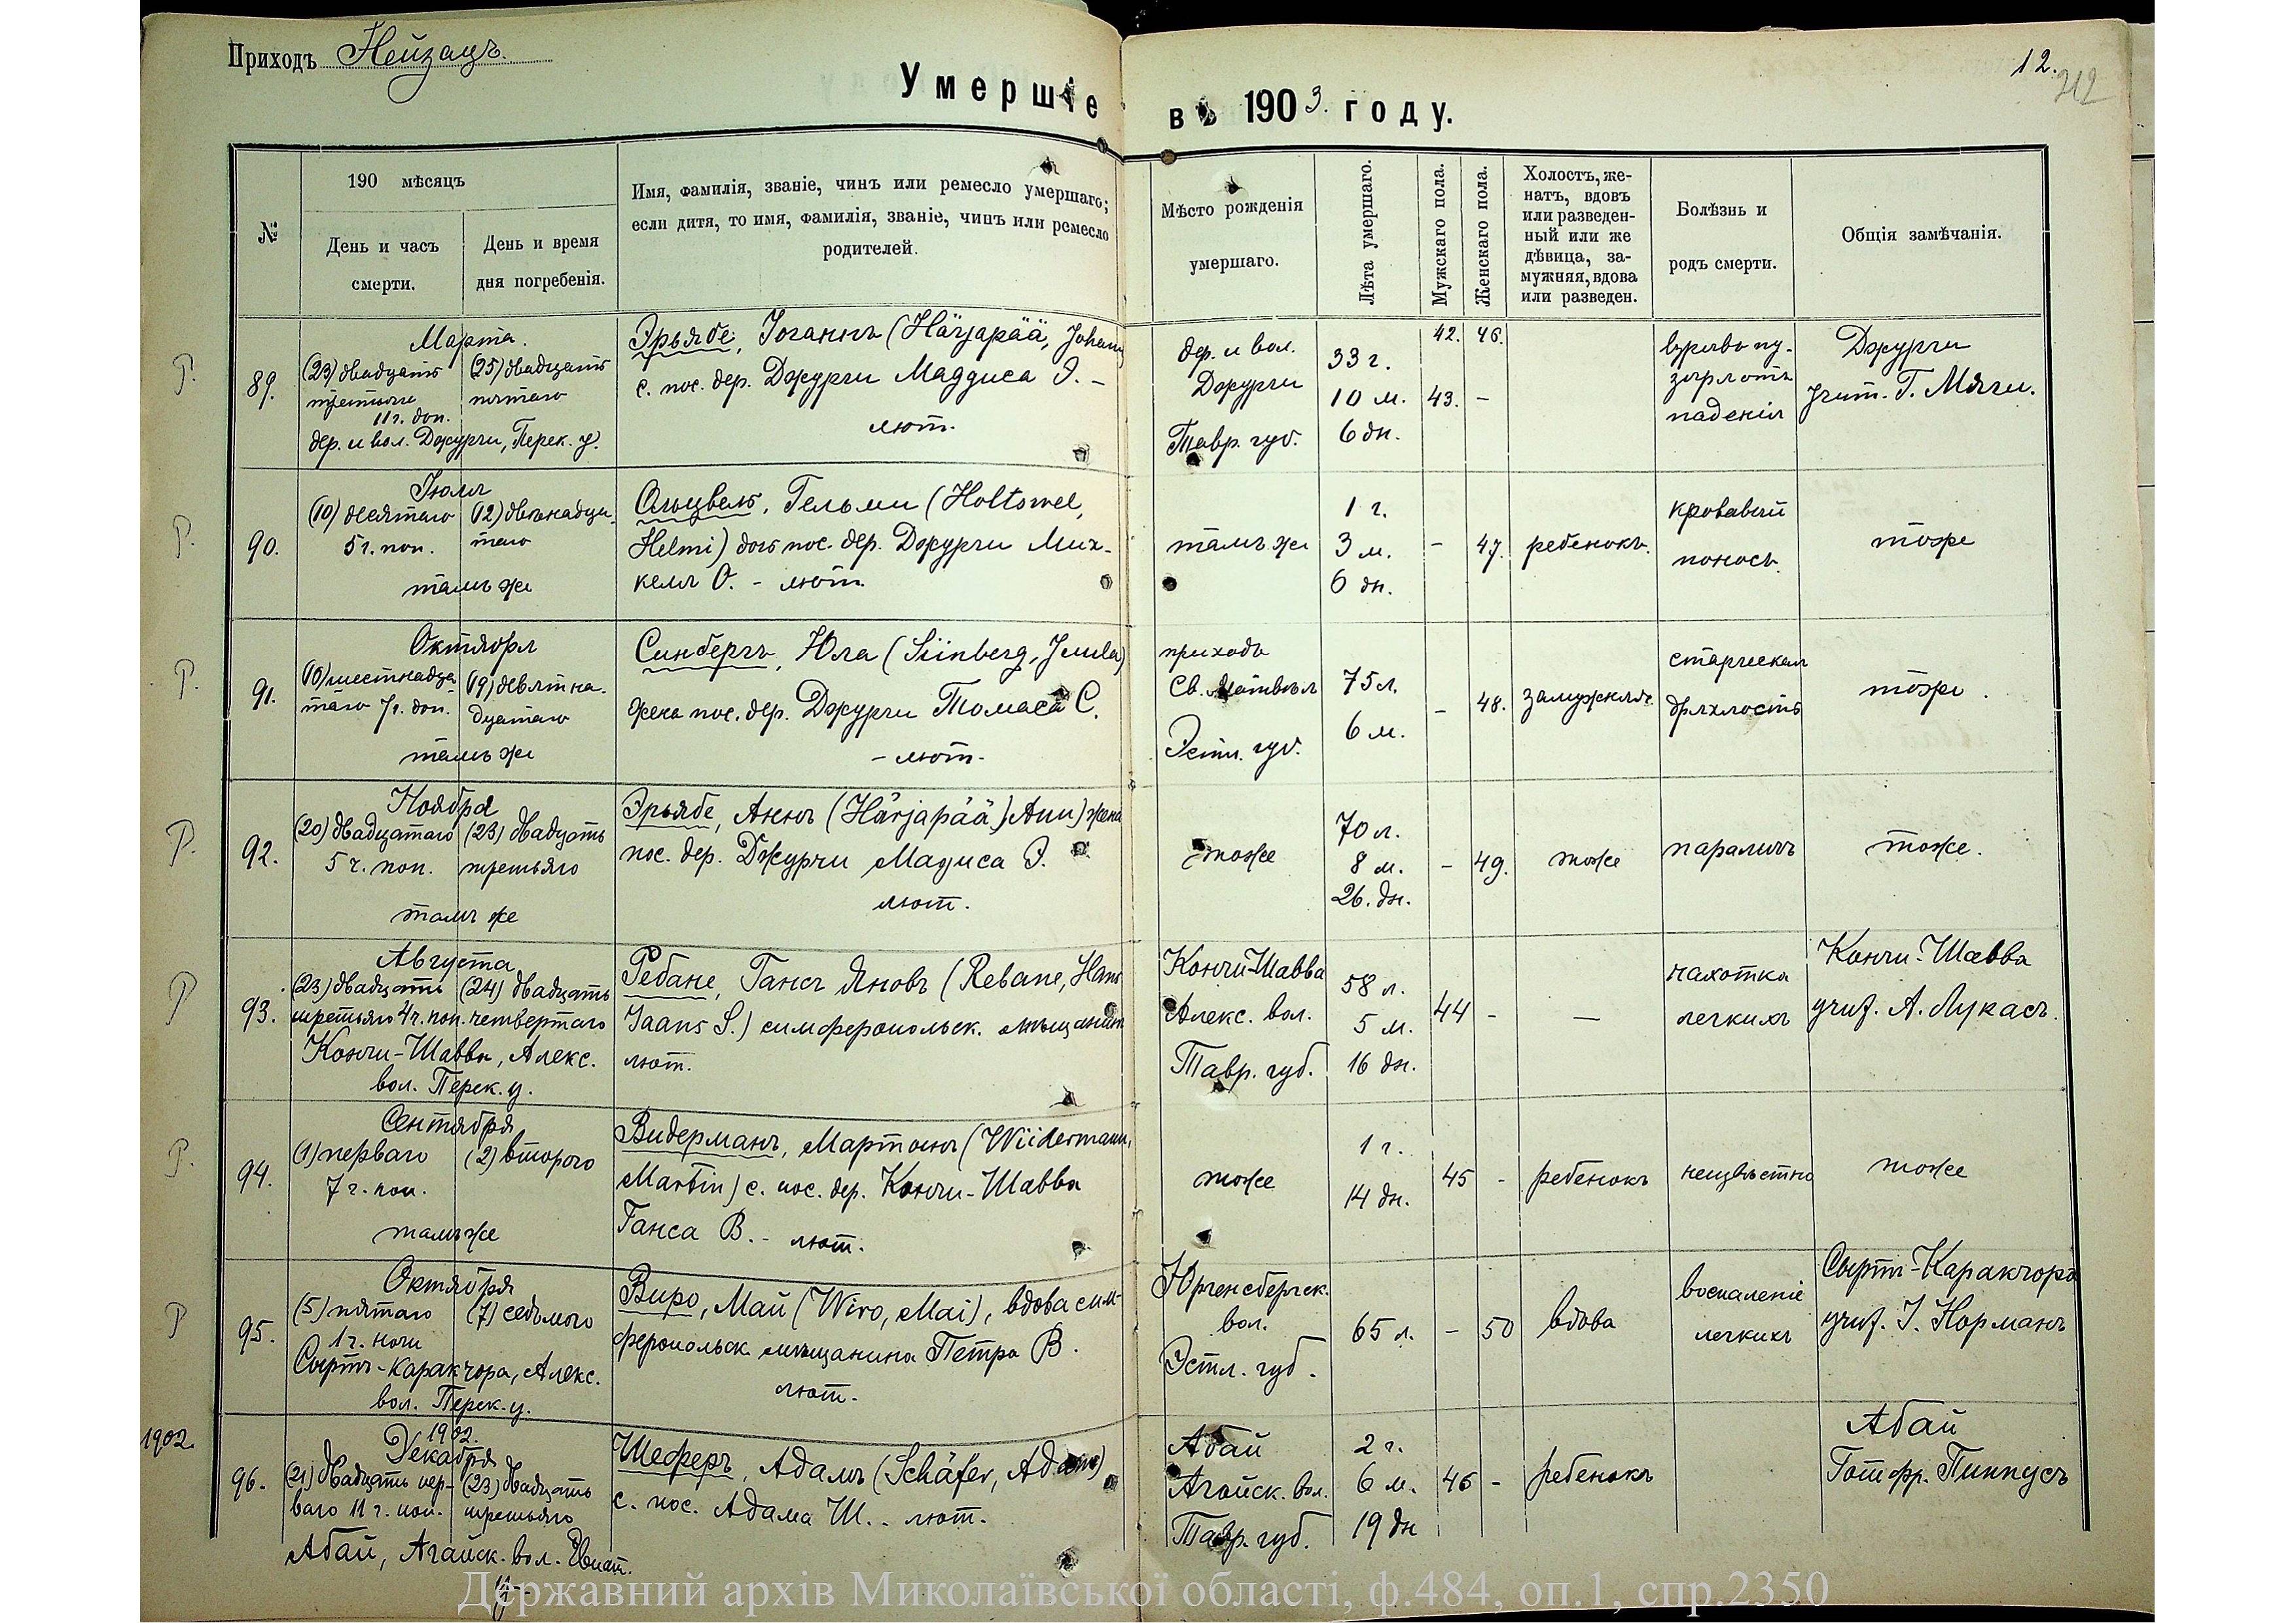 Приходъ Нейзацъ.
12.
212
Умершіе въ 1903. году.
№
190 мѣсяцъ
День и часъ
смерти.
День и время
дня погребенія.
Имя, фамилія, званіе, чинъ или ремесло умершаго;
если дитя, то имя, фамилія, званіе, чинъ или ремесло
родителей.
Мѣсто рожденія
умершаго.
Лѣта умершаго.
Мужскаго пола.
Женскаго пола.
Холостъ, же-
натъ, вдовъ
или разведен-
ный или же
дѣвица, за-
мужняя, вдова
или разведен.
Болѣзнь и
родъ смерти.
Общія замѣчанія.
Р.
89.
Марта.
(23) двадцать
третьяго
11 г. доп.
(25) двадцать
пятаго
дер. и вол. Джурчи, Перек. у.
Эрьябе, Іоганнъ (Härjapää, Johann
с. пос. дер. Джурчи Маддиса Э. -
лют.
дер. и вол.
Джурчи
Тавр. губ.
33 г.
10 м.
6 дн.
42. 46.
43. -
паденія
Джурчи
учит. Г. Мяги.
Р.
90.
Іюля
(10) десятаго
5 г. поп.
(12) двѣнадца-
таго
тамъ же
Ольцвель, Гельми (Holtswel,
Helmi) дочь пос. дер. Джурчи Мих-
келя О. - лют.
тамъ же
1 г.
3 м.
6 дн.
-
47.
ребенокъ.
кровавый
поносъ.
тоже
Р.
91.
Октября
(16) шестнадца
таго 7 г. доп.
(19) девятна-
дцатаго
тамъ же
Синбергъ, Юла (Siinberg, Juula)
жена пос. дер. Джурчи Томаса С.
- лют.
приходъ
Св. Матвѣя
Эстл. губ.
75 л.
6 м.
-
48.
замужняя.
старческая
дряхлость
тоже.
Р.
92.
Ноября
(20) двадцатаго
5 ч. поп.
(23) двадцать
третьяго
тамъ же
Эрьябе, Аннъ (Härjapää, Ann) жена
пос. дер. Джурчи Мадиса Э.
лют.
тоже
70 л.
8 м.
26. дн.
-
49.
тоже
параличъ
тоже.
Р
93.
Августа
(23) двадцать
третьяго 4 ч. поп.
(24) двадцать
четвертаго
Кончи-Шавва, Алекс.
вол. Перек. у.
Ребане, Гансъ Яновъ (Rebane, Hans
Jaans S.) симферопольск. мѣщанин
лют.
Кончи-Шавва
Алекс. вол.
Тавр. губ.
58 л.
5 м.
16 дн.
44
-
—
чахотка
легкихъ
Кончи-Шавва
учит. А. Лукасъ.
Р.
94.
Сентября
(1) перваго
7 ч. поп.
(2) второго
тамъ же
Видерманъ, Мартынъ (Wiidermann,
Martin) с. пос. дер. Кончи-Шавва
Ганса В. - лют.
тоже
1 г.
14 дн.
45
-
ребенокъ
неизвѣстно
тоже
Р
95.
Октября
(5) пятаго
1 ч. ночи
(7) седьмого
Сыртъ-Каракчора, Алекс.
вол. Перек. у.
Виро, Май (Wiro, Mai), вдова сим-
феропольск. мѣщанина Петра В.
лют.
Юргенсбергск.
вол.
Эстл. губ.
65 л.
-
50
вдова
воспаленіе
легкихъ
Сыртъ-Каракчора
учит. І. Норманъ
1902.
96.
1902.
Декабря
(21) двадцать пер-
ваго 11 г. поп.
(23) двадцать
третьяго
Абай, Агайск. вол.
Шеферъ, Адамъ (Schäfer, Adam)
с. пос. Адама Ш. - лют.
Абай
Агайск. вол.
Тавр. губ.
2 г.
6 м.
19 дн
46
-
ребенокъ
Абай
Готфр. Пиппусъ
Державний архів Миколаївської області, ф.484, оп.1, спр.2350